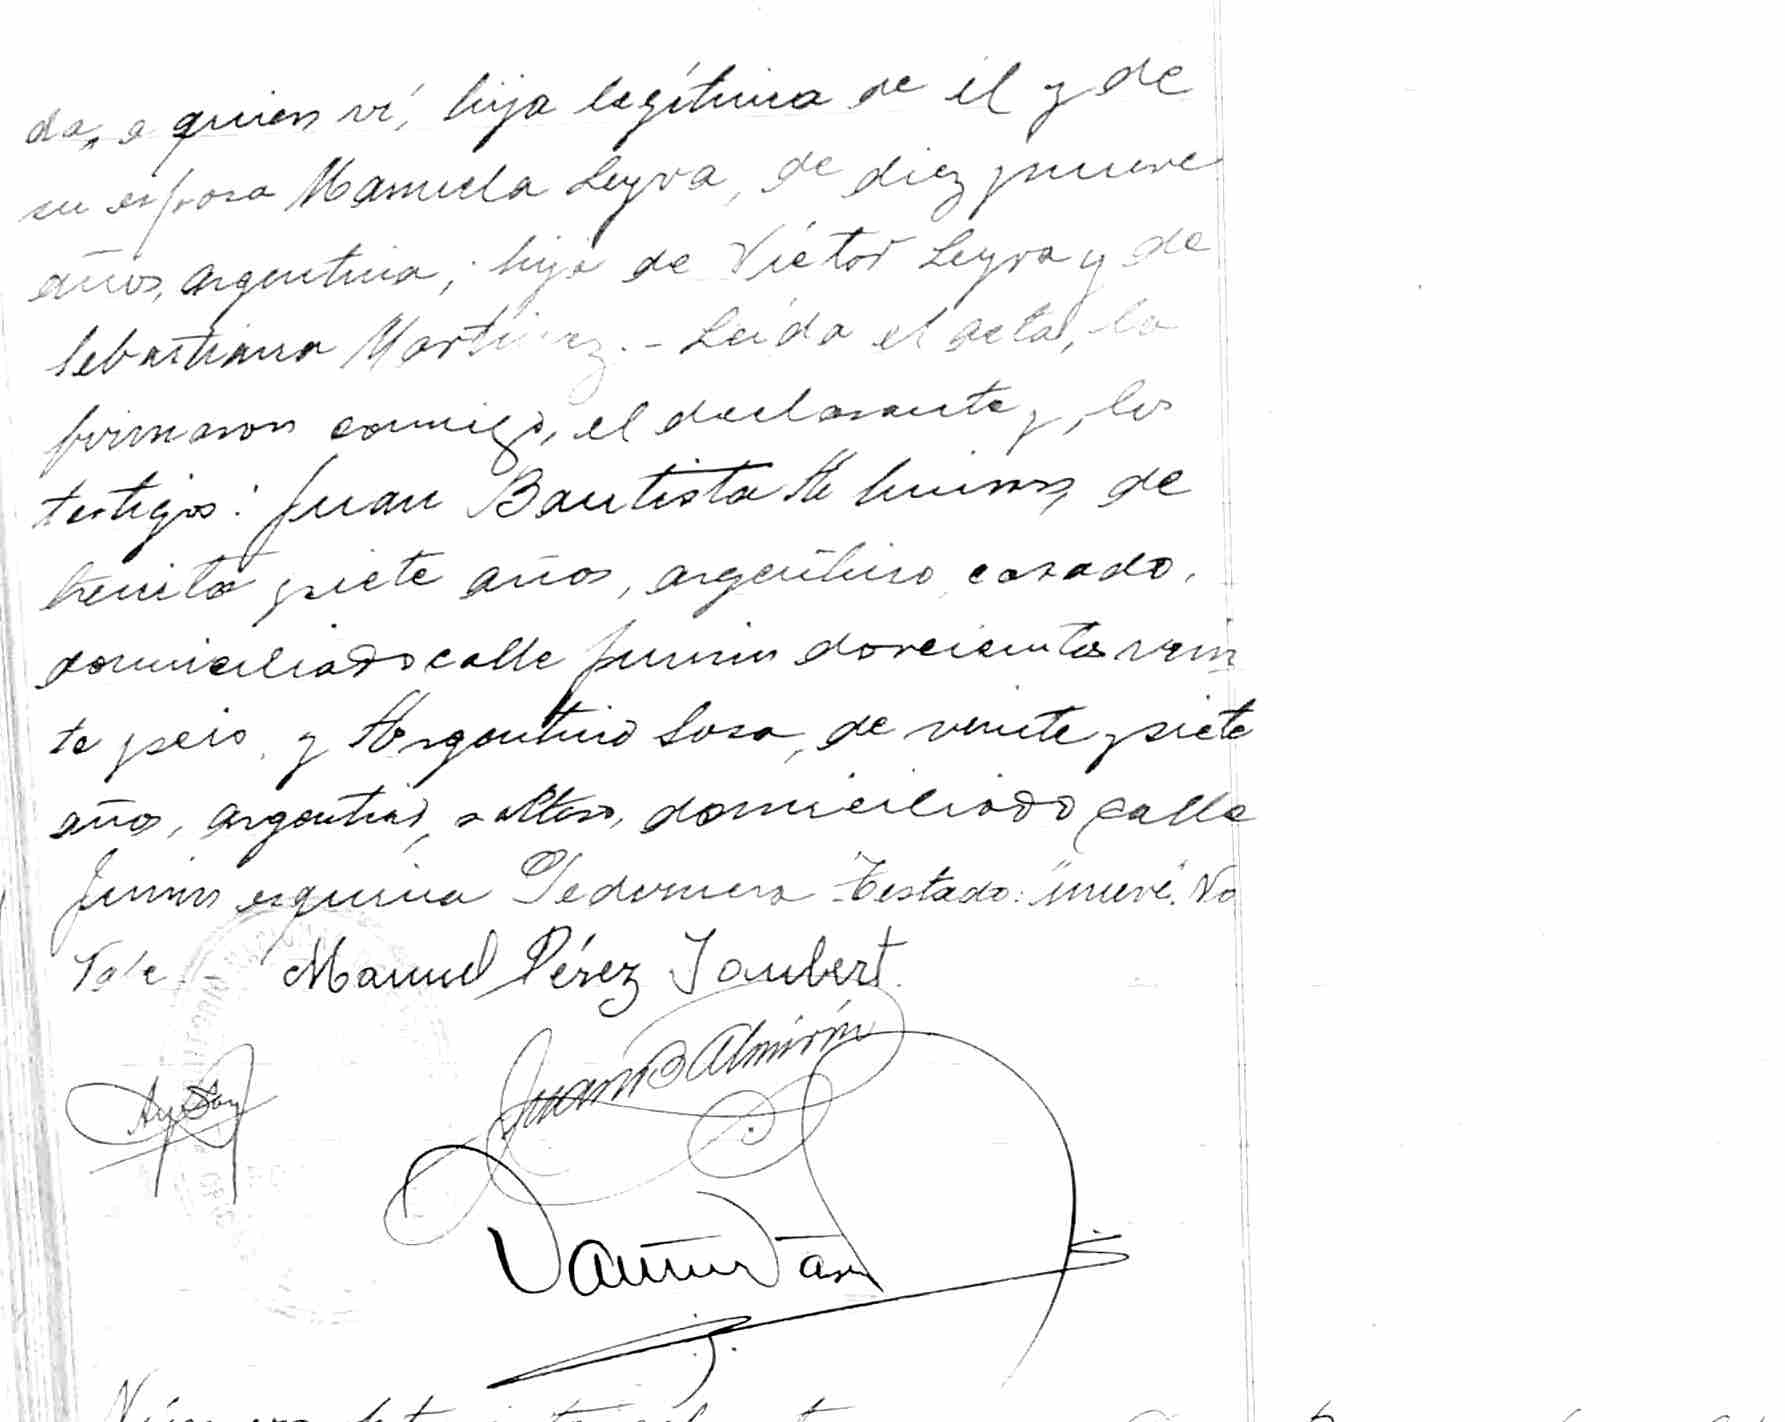 da, a quien ví, hija legítima de él y de
su esposa Manuela Leyva, de diez y nueve
años, argentina, hija de Víctor Leyva y de
Sebastiana Martinez. - Leida el acta, la
firmaron conmigo, el declarante y, los
testigos: Juan Bautista de
treinta y siete años, argentino, casado,
domiciliado calle Junin doscientos vein
te y seis, y Argentino Sosa, de veinte y siete
años, argentino, soltero, domiciliado calle
Junin esquina Pedernera - Testado: "nueve". No
Vale. - Manuel Pérez Jaubert.
Juan B Almirón
Número